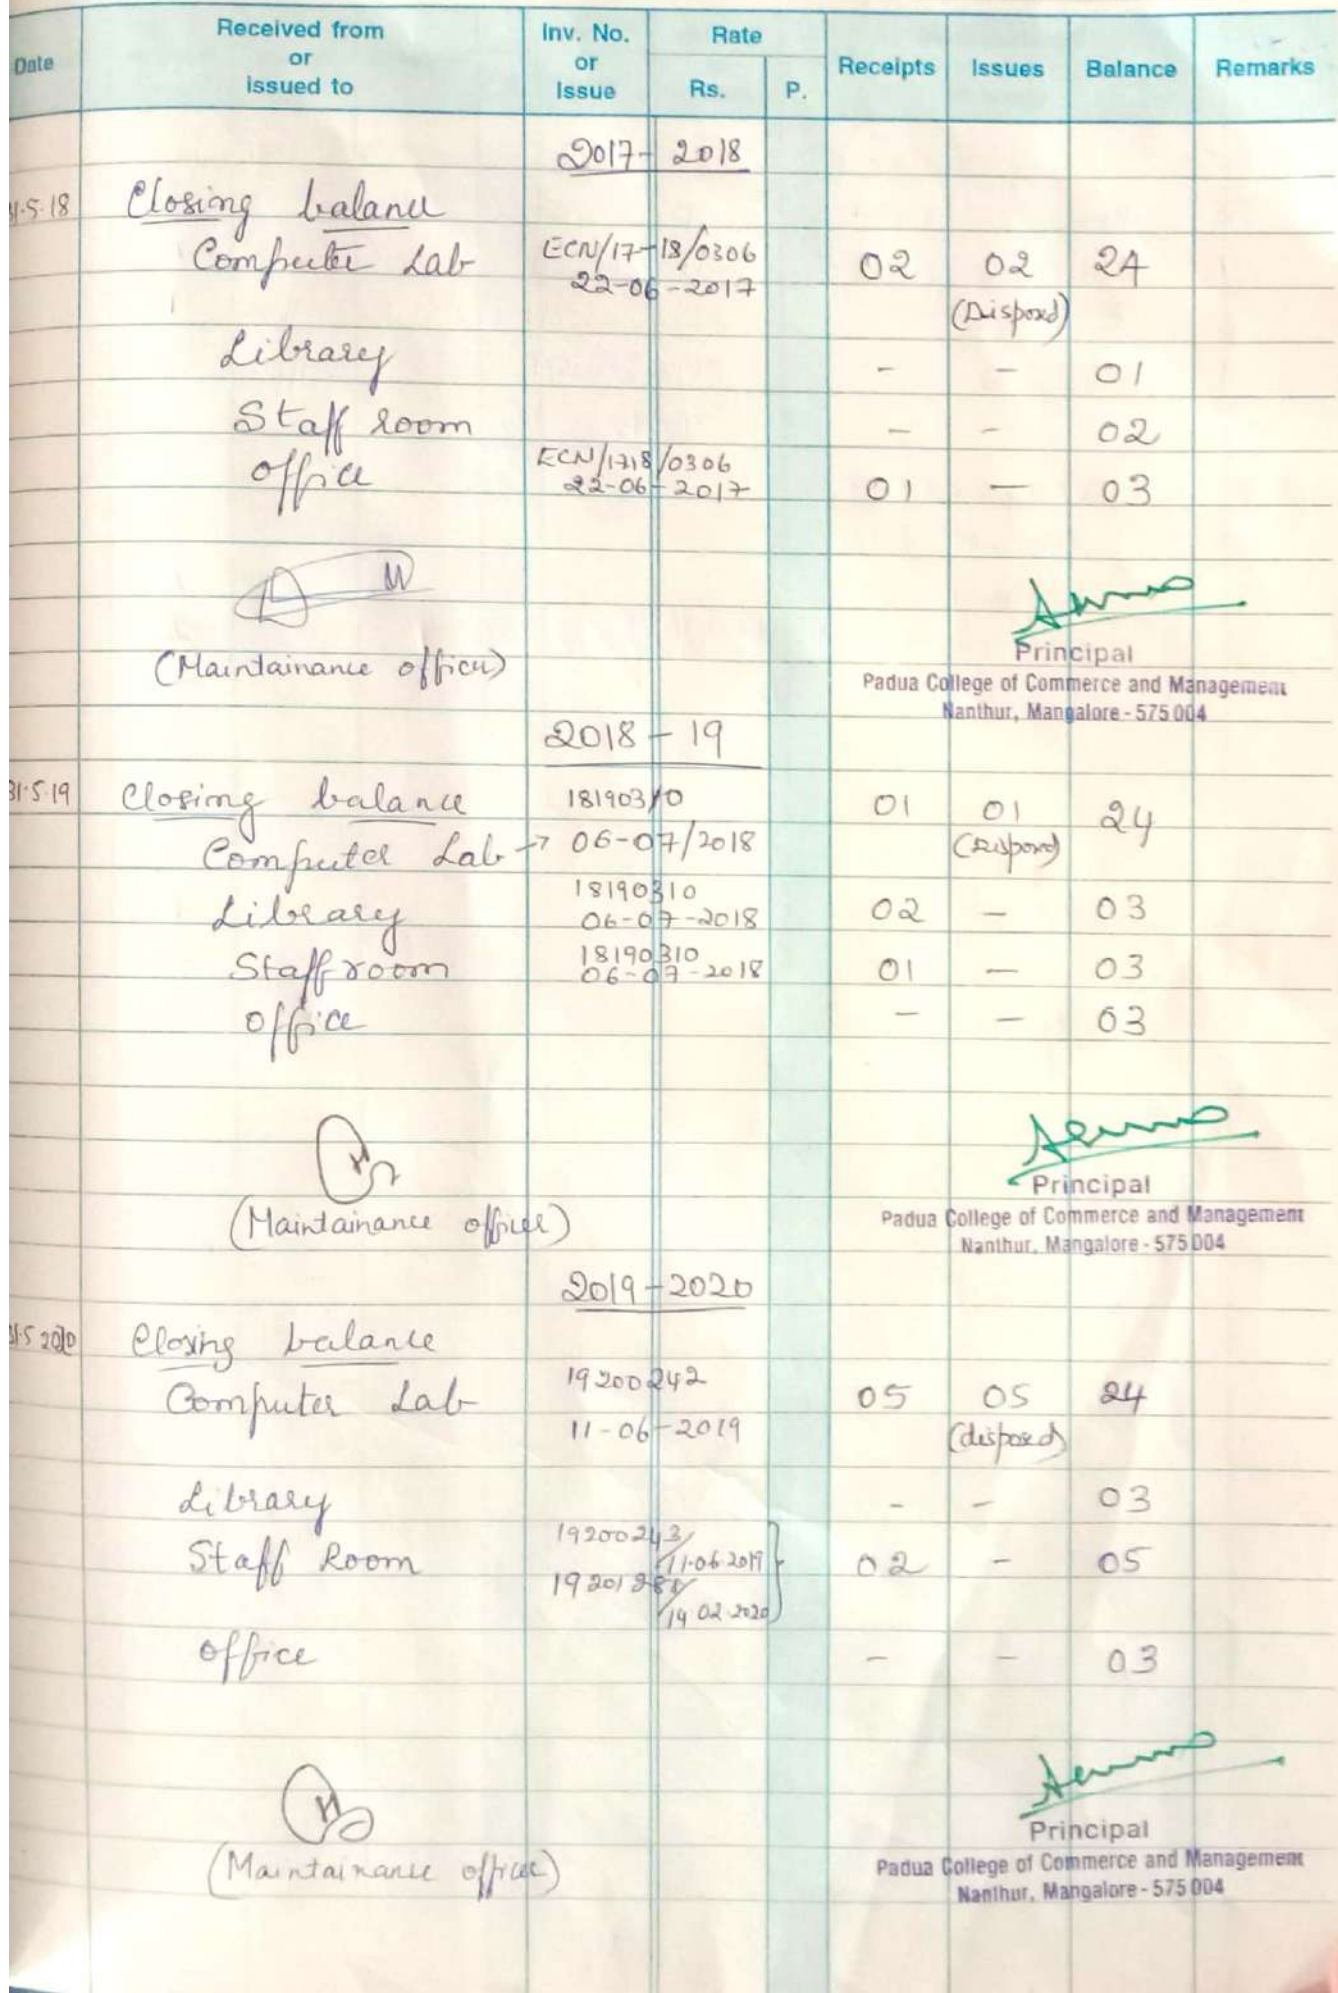 Date Received from or issued to Inv. No. or Issue Rate Rs. P. Receipts Issues Balance Remarks
2017-2018
31-5-18 Closing balance
Computer Lab ECN/17-18/0306 02 02 24
22-06-2017
(Disposed)
Library - - 01
Staff room - - 02
office ECN/1718/0306 01 - 03
22-06-2017
(Maintainance officer)
Principal
Padua College of Commerce and Management
Nanthur, Mangalore - 575 004
2018-19
31-5-19 Closing balance 18190310 01 01 24
Computer Lab → 06-07/2018 (Disposed)
Library 18190310 02 - 03
06-07-2018
Staff room 18190310 01 - 03
06-07-2018
office - - 03
(Maintainance officer)
Principal
Padua College of Commerce and Management
Nanthur, Mangalore - 575 004
2019-2020
31-5 2020 Closing balance
Computer Lab 19200242 05 05 24
11-06-2019 (disposed)
Library - - 03
Staff Room 19200243/ 02 - 05
11.06.2019
14.02.2020
office - - 03
(Maintainance officer)
Principal
Padua College of Commerce and Management
Nanthur, Mangalore - 575 004